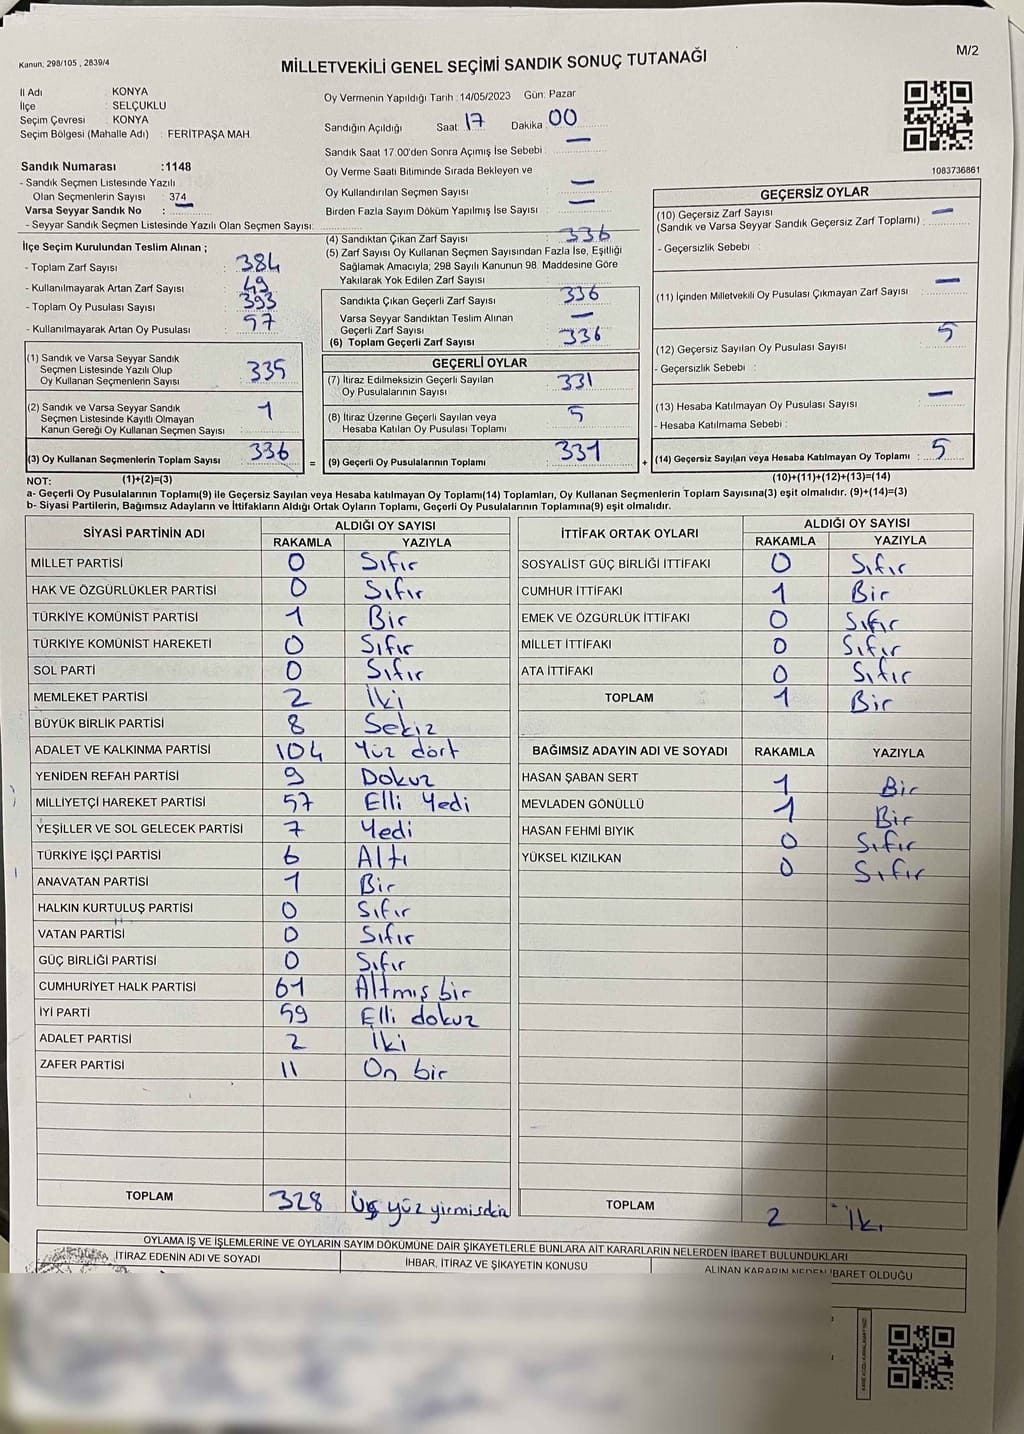 Kanun, 298/105 , 2839/4
MİLLETVEKİLİ GENEL SEÇİMİ SANDIK SONUÇ TUTANAĞI
M/2
İl Adı KONYA
İlçe SELÇUKLU
Seçim Çevresi : KONYA
Seçim Bölgesi (Mahalle Adı) : FERİTPAŞA MAH.
Sandık Numarası :1148
- Sandık Seçmen Listesinde Yazılı
Olan Seçmenlerin Sayısı : 374
Varsa Seyyar Sandık No :
- Seyyar Sandık Seçmen Listesinde Yazılı Olan Seçmen Sayısı:
Oy Vermenin Yapıldığı Tarih :14/05/2023 Gün: Pazar
Sandığın Açıldığı Saat: 17 Dakika: 00
Sandık Saat 17:00'den Sonra Açımış İse Sebebi : —
Oy Verme Saati Bitiminde Sırada Bekleyen ve
Oy Kullandırılan Seçmen Sayısı : —
Birden Fazla Sayım Döküm Yapılmış İse Sayısı : —
1083736861
İlçe Seçim Kurulundan Teslim Alınan ;
- Toplam Zarf Sayısı : 384
- Kullanılmayarak Artan Zarf Sayısı : 49
- Toplam Oy Pusulası Sayısı : 393
- Kullanılmayarak Artan Oy Pusulası : 57
(1) Sandık ve Varsa Seyyar Sandık
Seçmen Listesinde Yazılı Olup
Oy Kullanan Seçmenlerin Sayısı 335
(2) Sandık ve Varsa Seyyar Sandık
Seçmen Listesinde Kayıtlı Olmayan
Kanun Gereği Oy Kullanan Seçmen Sayısı 1
(3) Oy Kullanan Seçmenlerin Toplam Sayısı 336
(4) Sandıktan Çıkan Zarf Sayısı : 336
(5) Zarf Sayısı Oy Kullanan Seçmen Sayısından Fazla İse, Eşitliği
Sağlamak Amacıyla; 298 Sayılı Kanunun 98. Maddesine Göre
Yakılarak Yok Edilen Zarf Sayısı
Sandıkta Çıkan Geçerli Zarf Sayısı : 336
Varsa Seyyar Sandıktan Teslim Alınan
Geçerli Zarf Sayısı : —
(6) Toplam Geçerli Zarf Sayısı : 336
GEÇERLİ OYLAR
(7) İtiraz Edilmeksizin Geçerli Sayılan
Oy Pusulalarının Sayısı : 331
(8) İtiraz Üzerine Geçerli Sayılan veya
Hesaba Katılan Oy Pusulası Toplamı : 5
= (9) Geçerli Oy Pusulalarının Toplamı : 331 +
GEÇERSİZ OYLAR
(10) Geçersiz Zarf Sayısı
(Sandık ve Varsa Seyyar Sandık Geçersiz Zarf Toplamı) : —
- Geçersizlik Sebebi :
(11) İçinden Milletvekili Oy Pusulası Çıkmayan Zarf Sayısı : —
(12) Geçersiz Sayılan Oy Pusulası Sayısı : 5
- Geçersizlik Sebebi :
(13) Hesaba Katılmayan Oy Pusulası Sayısı : —
- Hesaba Katılmama Sebebi :
(14) Geçersiz Sayılan veya Hesaba Katılmayan Oy Toplamı : 5
NOT: (1)+(2)=(3) (10)+(11)+(12)+(13)=(14)
a- Geçerli Oy Pusulalarının Toplamı(9) ile Geçersiz Sayılan veya Hesaba katılmayan Oy Toplamı(14) Toplamları, Oy Kullanan Seçmenlerin Toplam Sayısına(3) eşit olmalıdır. (9)+(14)=(3)
b- Siyasi Partilerin, Bağımsız Adayların ve İttifakların Aldığı Ortak Oyların Toplamı, Geçerli Oy Pusulalarının Toplamına(9) eşit olmalıdır.
SİYASİ PARTİNİN ADI ALDIĞI OY SAYISI
RAKAMLA YAZIYLA
MİLLET PARTİSİ 0 Sıfır
HAK VE ÖZGÜRLÜKLER PARTİSİ 0 Sıfır
TÜRKİYE KOMÜNİST PARTİSİ 1 Bir
TÜRKİYE KOMÜNİST HAREKETİ 0 Sıfır
SOL PARTİ 0 Sıfır
MEMLEKET PARTİSİ 2 İki
BÜYÜK BİRLİK PARTİSİ 8 Sekiz
ADALET VE KALKINMA PARTİSİ 104 Yüz dört
YENİDEN REFAH PARTİSİ 9 Dokuz
MİLLİYETÇİ HAREKET PARTİSİ 57 Elli Yedi
YEŞİLLER VE SOL GELECEK PARTİSİ 7 Yedi
TÜRKİYE İŞÇİ PARTİSİ 6 Altı
ANAVATAN PARTİSİ 1 Bir
HALKIN KURTULUŞ PARTİSİ 0 Sıfır
VATAN PARTİSİ 0 Sıfır
GÜÇ BİRLİĞİ PARTİSİ 0 Sıfır
CUMHURİYET HALK PARTİSİ 61 Altmış bir
İYİ PARTİ 59 Elli dokuz
ADALET PARTİSİ 2 İki
ZAFER PARTİSİ 11 On bir
TOPLAM 328 Üç yüz
İTTİFAK ORTAK OYLARI ALDIĞI OY SAYISI
RAKAMLA YAZIYLA
SOSYALİST GÜÇ BİRLİĞİ İTTİFAKI 0 Sıfır
CUMHUR İTTİFAKI 1 Bir
EMEK VE ÖZGÜRLÜK İTTİFAKI 0 Sıfır
MİLLET İTTİFAKI 0 Sıfır
ATA İTTİFAKI 0 Sıfır
TOPLAM 1 Bir
BAĞIMSIZ ADAYIN ADI VE SOYADI RAKAMLA YAZIYLA
HASAN ŞABAN SERT 1 Bir
MEVLADEN GÖNÜLLÜ 1 Bir
HASAN FEHMİ BIYIK 0 Sıfır
YÜKSEL KIZILKAN 0 Sıfır
TOPLAM 2 İki
OYLAMA İŞ VE İŞLEMLERİNE VE OYLARIN SAYIM DÖKÜMÜNE DAİR ŞİKAYETLERLE BUNLARA AİT KARARLARIN NELERDEN İBARET BULUNDUKLARI
İTİRAZ EDENİN ADI VE SOYADI İHBAR, İTİRAZ VE ŞİKAYETİN KONUSU ALINAN KARARIN NEDEN İBARET OLDUĞU